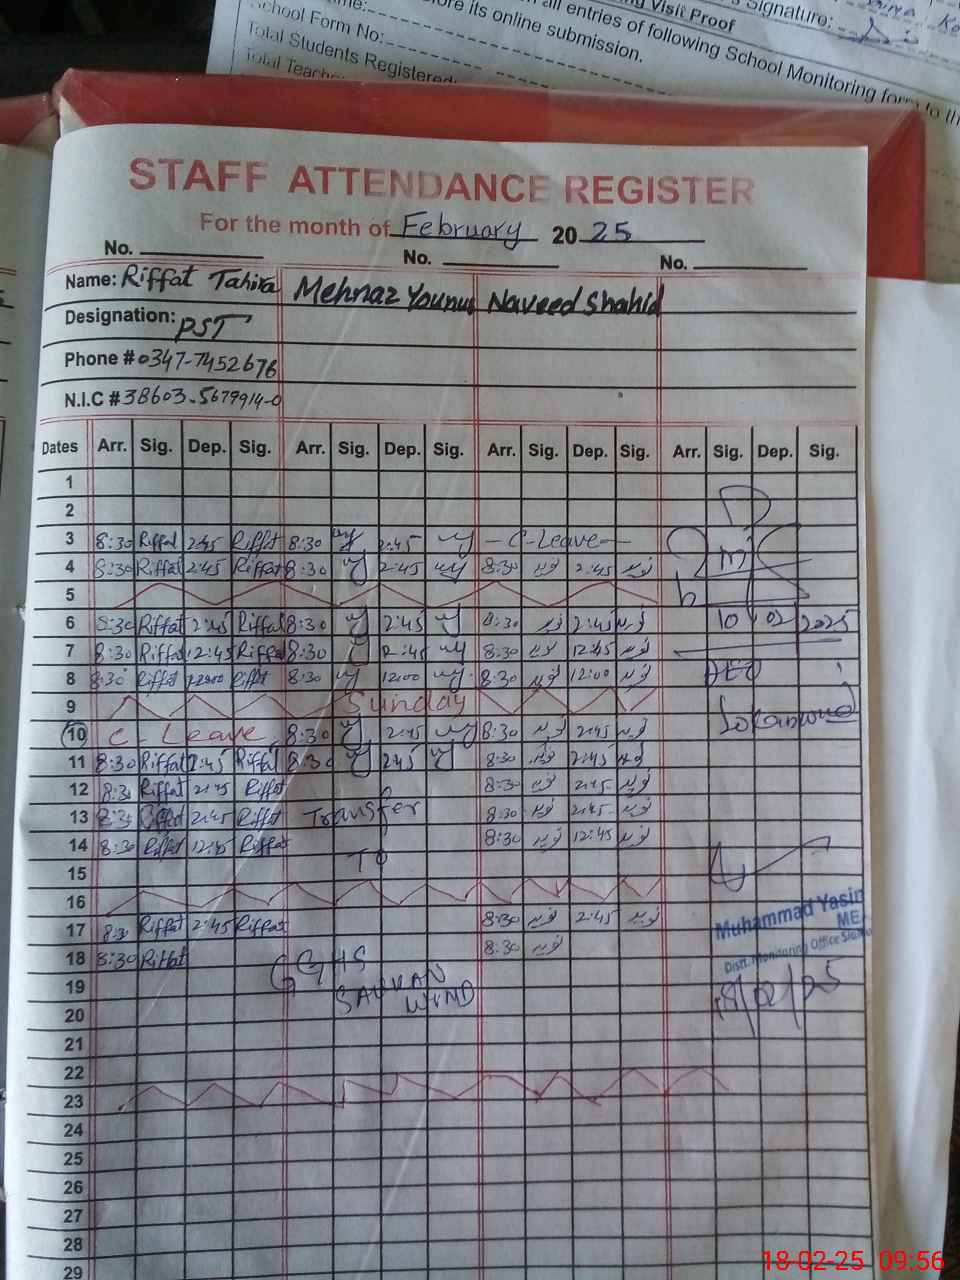 School Form No:
Total Students Registered:
Total Teach
ore its online submission.
all entries of following School Monitoring form to th
Visit Proof
Signature:
STAFF ATTENDANCE REGISTER
For the month of February 20 25
No. No. No.
Name: Riffat Tahira Mehnaz Younus Naveed Shahid
Designation: PST
Phone # 0347-7452676
N.I.C # 38603-5679914-0
Dates Arr. Sig. Dep. Sig. Arr. Sig. Dep. Sig. Arr. Sig. Dep. Sig. Arr. Sig. Dep. Sig.
1
2
3 8:30 Riffat 2:45 Riffat 8:30 2:45 - C-Leave -
4 8:30 Riffat 2:45 Riffat 8:30 2:45 8:30 2:45
5
6 8:30 Riffat 2:45 Riffat 8:30 2:45 8:30 2:45 10 02 2025
7 8:30 Riffat 12:45 Riffat 8:30 12:45 8:30 12:45
8 8:30 Riffat 12:00 Riffat 8:30 12:00 8:30 12:00
9 Sunday
10 C-Leave 8:30 2:45 8:30 2:45
11 8:30 Riffat 2:45 Riffat 8:30 2:45 8:30 2:45
12 8:30 Riffat 2:45 Riffat 8:30 2:45
13 8:30 2:45 Riffat Transfer 8:30 2:45
14 8:30 Riffat 12:45 Riffat To 8:30 12:45
15
16
17 8:30 Riffat 2:45 Riffat 8:30 2:45
Muhammad Yasin
ME
18 8:30 Riffat GGHS 8:30
Distt. Monitoring Office
19 SAUKAN WIND 18/02/25
20
21
22
23
24
25
26
27
28
29
18-02-25 09:56